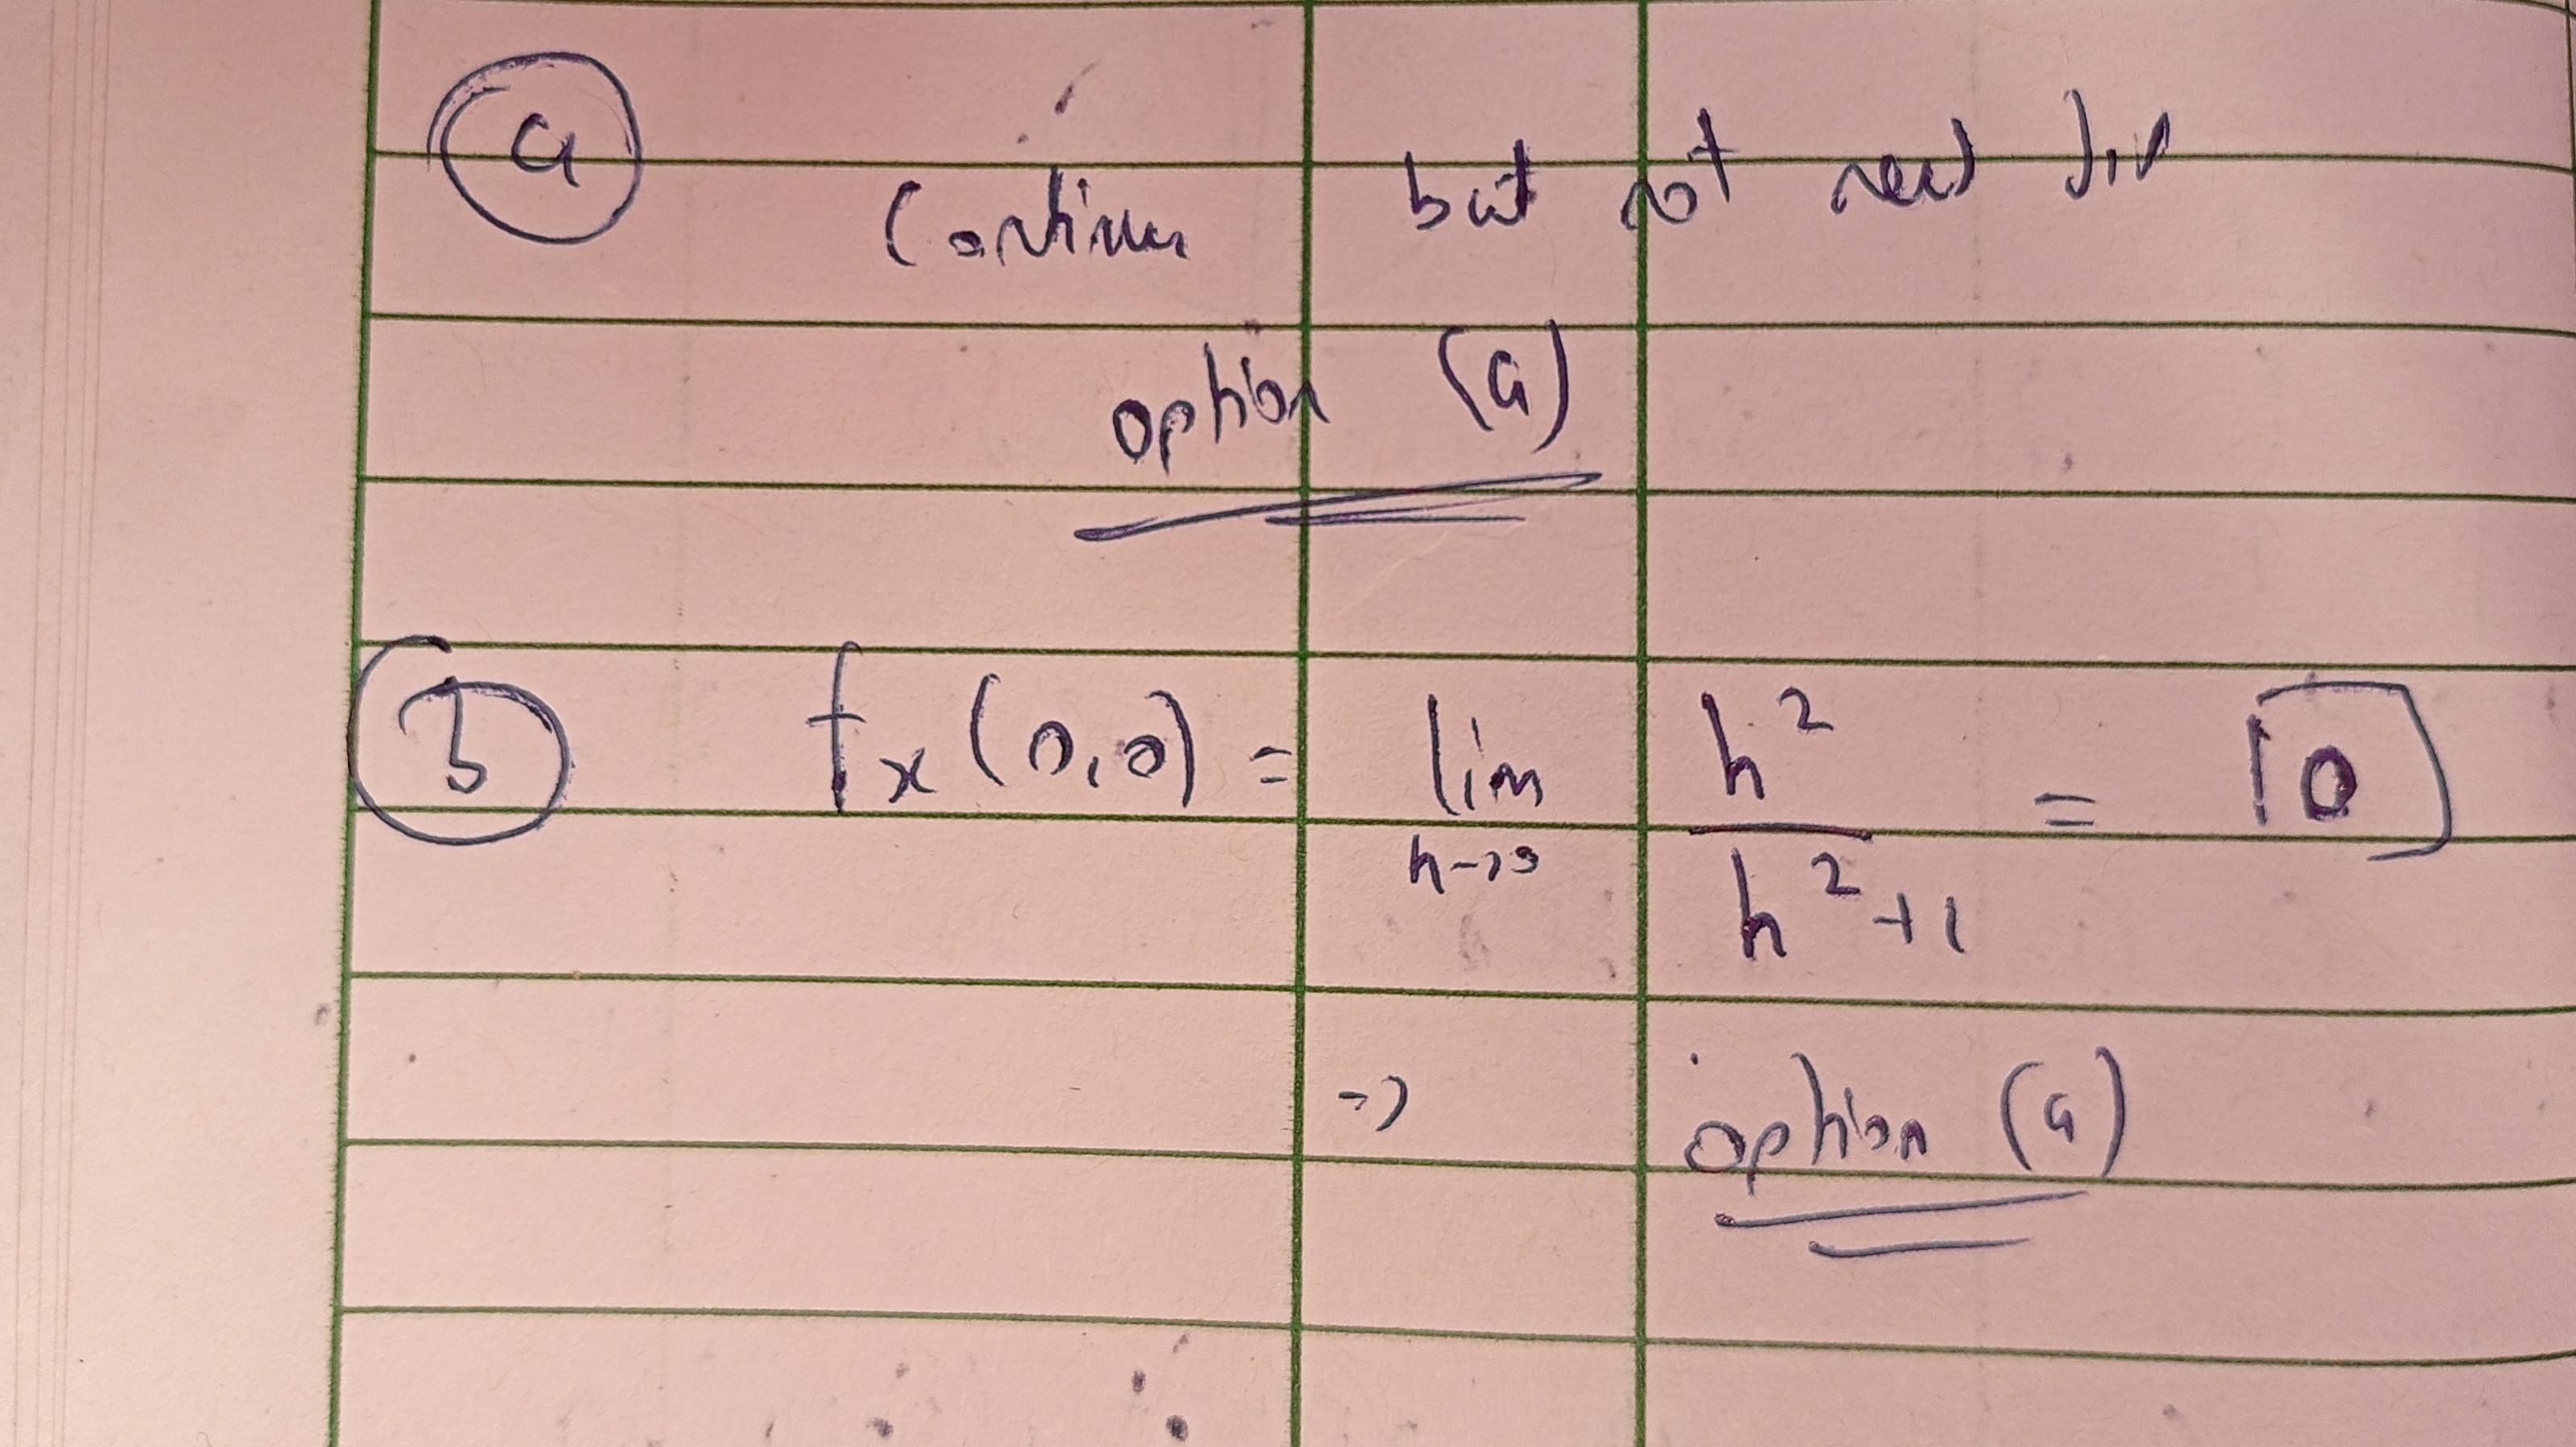 a continu but not need
option (a)
b fx(0,0) = lim h→0 h²/h²+1 = 0
=> option (a)